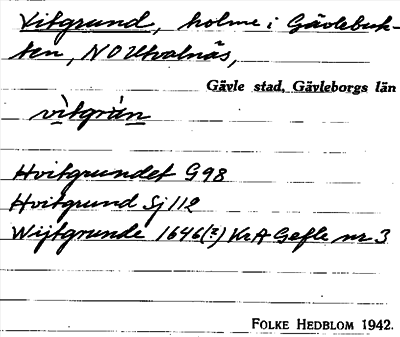 Vitgrund, holme i Gävlebuk-
ten, NO Utvalnäs,
Gävle stad, Gävleborgs län
vìtgrùn
Hvitgrundet G98
Hvitgrund Sj 112
Wijtgrunde 1646(?) KrA Gefle nr 3
FOLKE HEDBLOM 1942.